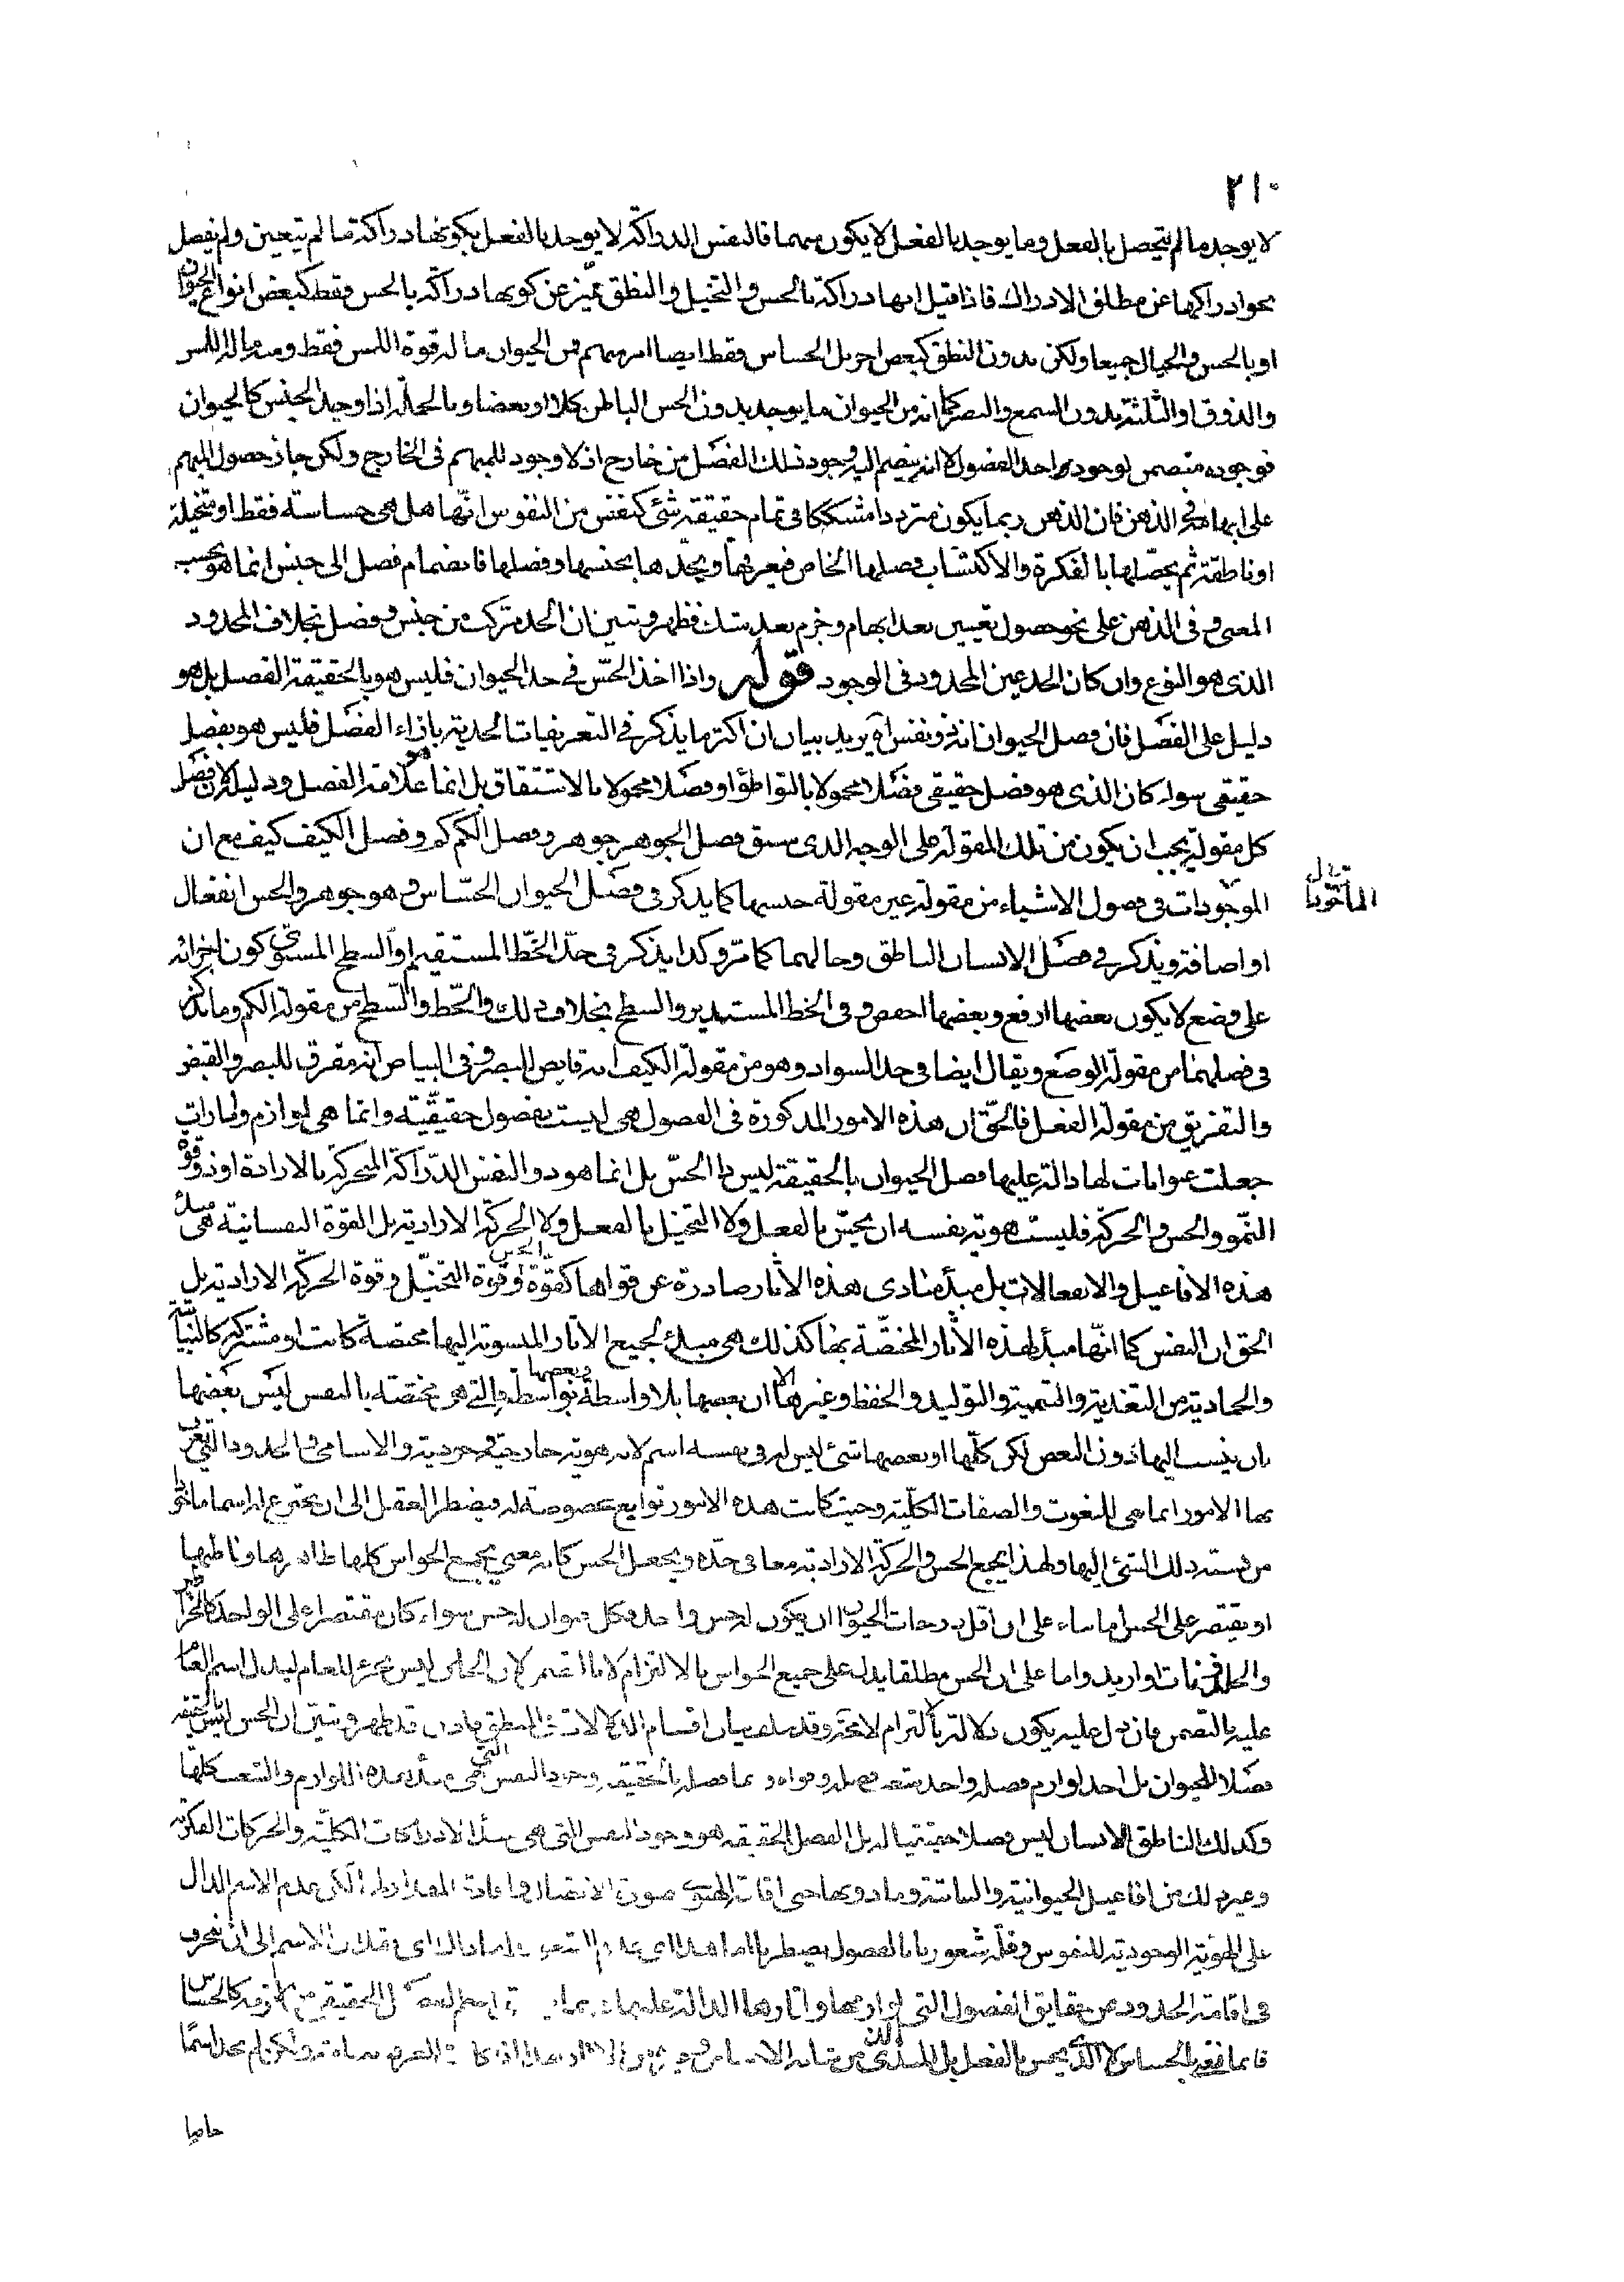 ٢١٠
لا يوجد ما لم يتحصل بالفعل وما يوجد بالفعل لا يكون مبهما فالنفس الدراكة لا يوجد بالفعل بكونها دراكة ما لم يتعين ولم يفصل
نحو ادراكها عن مطلق الادراك فاذا قيل انها دراكة بالحس والتخيل والنطق تميز عن كونها دراكة بالحس فقط كبعض انواع الحيوان
او بالحس والخيال جميعا ولكن بدون النطق كبعض اخر بل الحساس فقط ايضا امر مبهم فمن الحيوان ما له قوة اللمس فقط ومنه ما له اللمس
والذوق او الثلثة بدون السمع والبصر كما انه من الحيوان ما يوجد بدون الحس الباطن كلا او بعضا وبالجملة اذا وجد الجنس كالحيوان
فوجوده متضمن لوجود احد الفصول لا انه ينضم اليه وجود ذلك الفصل من خارج اذ لا وجود للمبهم فى الخارج ولكن جاز حصول المبهم
على ابهامه فى الذهن فان الذهن ربما يكون مترددا متشككا فى تمام حقيقة شئ كنفس من النفوس انها هل هى حساسة فقط او متخيلة
او ناطقة ثم يحصلها بالفكرة والاكتساب فصلها الخاص فيعرفها ويحدها بجنسها وفصلها فانضمام فصل الى جنس انما هو بحسب
المعنى وفى الذهن على نحو حصول تعيين بعد ابهام وجزم بعد شك فظهر وتبين ان الحد مركب من جنس وفصل بخلاف المحدود
الذى هو النوع وان كان الحد عين المحدود فى الوجود قوله واذا اخذ الحس فى حد الحيوان فليس هو بالحقيقة الفصل بل هو
دليل على الفصل فان فصل الحيوان انه ذو نفس اه يريد بيان ان اكثر ما يذكر فى التعريفات الحدية بازاء الفصل فليس هو بفصل
حقيقى سواء كان الذى هو فصل حقيقى فصلا محمولا بالتواطؤ او فصلا محمولا بالاشتقاق بل انما هو علامة الفصل ودليله لان فصل
كل مقولة يجب ان يكون من تلك المقولة على الوجه الذى سبق فصل الجوهر جوهر وفصل الكم كم وفصل الكيف كيف مع ان
الموجودات فى فصول الاشياء من مقولة غير مقولة جنسها كما يذكر فى فصل الحيوان الحساس وهو جوهر والحس انفعال
او اضافة ويذكر فى فصل الانسان الناطق وحالهما كما مر وكذا يذكر فى حد الخط المستقيم او السطح المستوى كون اجزائه
على وضع لا يكون بعضها ارفع وبعضها اخفض وفى الخط المستدير والسطح بخلاف ذلك والخط والسطح من مقولة الكم وما يذكر
فى فصلهما من مقولة الوضع ويقال ايضا فى حد السواد وهو من مقولة الكيف انه قابض للبصر وفى البياض انه مفرق للبصر والقبض
والتفريق من مقولة الفعل فالحق ان هذه الامور المذكورة فى الفصول هى ليست بفصول حقيقية وانما هى لوازم وامارات
جعلت عنوانات لها دالة عليها فصل الحيوان بالحقيقة ليس ذا الحس بل انما هو ذو النفس الدراكة المتحركة بالارادة او ذو قوة
النمو والحس والحركة فليست هوية نفسه ان يحس بالفعل ولا التخيل بالفعل ولا الحركة الارادية بل القوة النفسانية هى مبدأ
هذه الافاعيل والانفعالات بل مبدأ مبادى هذه الاثار صادرة عن قواها كقوة الحس او قوة التخيل وقوة الحركة الارادية بل
الحق ان النفس كما انها مبدأ لهذه الاثار المختصة بها كذلك هى مبدأ لجميع الاثار المنسوبة اليها مختصة كانت او مشتركة كالنباتية
والجمادية من التغذية والتنمية والتوليد والحفظ وغيرها الا ان بعضها بلا واسطة وبعضها بواسطة والتى هو مختصة بالنفس ليس بعضها
بان ينسب اليها دون البعض لكن كلها او بعضها شئ ليس له فى نفسه اسم لانه هوية خارجية وجودية والاسامى والحدود التى يعرف
بها الامور انما هى للنعوت والصفات الكلية وحيث كانت هذه الامور توابع مخصوصة له فيضطر العقل الى ان يخترع له اسما مأخوذا
من نسبة ذلك الشئ اليها ولهذا يجمع الحس والحركة الارادية معا فى حده ويجعل الحس كانه معنى يجمع الحواس كلها ظاهرها وباطنها
او يقتصر على الحس اما بناء على ان اقل درجات الحيوان ان يكون له حس واحد وكل حيوان له حس سواء كان مقتصرا على الواحد
واما على ان الحس مطلقا يدل على جميع الحواس بالالتزام لا بالتضمن لان الخاص ليس بجزء للعام ليدل اسم العام
عليه بالتضمن فان دل عليه يكون دلالة بالتزام لا محة وقد سلف بيان اقسام الدلالات فى المنطق فاذن قد ظهر وتبين ان الحس ليس بالحقيقة
فصلا للحيوان بل احد لوازم فصله واحد شعب فصله وقواه وانما فصله بالحقيقة وجود النفس التى هى مبدأ هذه اللوازم والشعب كلها
وكذلك الناطق للانسان ليس فصلا حقيقيا له بل الفصل الحقيقة هو وجود النفس التى هى مبدأ الادراكات الكلية والحركات الفكرية
وغير ذلك من افاعيل الحيوانية والنباتية وما دونها حتى افادة الهيولى صورة الاتصال وافادة المقدار لكن عدم الاسم الدال
على الهوية الوجودية للنفوس وقلة شعورنا بالفصول يضطرنا الى ان ننحرف
فى اقامة الحدود عن حقايق الفصول الى لوازمها واثارها الدالة عليها الحقيقى من لازمه كالحساس
فانما نعنى بالحساس لا الذى يحس بالفعل بل المبدأ الذى من شانه الاحساس
المأخوذات
حاصلا